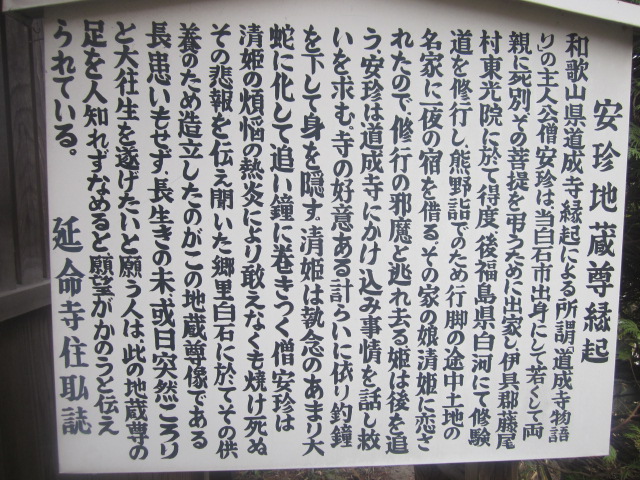 安珍地蔵尊縁起
和歌山県道成寺縁起による所謂「道成寺物語
り」の主人公僧安珍は、当白石市出身にして若くして両
親に死別、その菩提を弔うために出家し伊具郡藤尾
村東光院に於て得度、後福島県白河にて修験
道を修行し、熊野詣でのため行脚の途中土地の
名家に一夜の宿を借る。その家の娘清姫に恋さ
れたので、修行の邪魔と逃れ去る。姫は後を追
う、安珍は道成寺にかけ込み事情を話し救
いを求む。寺の好意ある計らいに依り釣鐘
を下して身を隠す。清姫は執念のあまり大
蛇に化して追い鐘に巻きつく僧安珍は
清姫の煩悩の熱炎により敢えなくも焼け死ぬ
その悲報を伝え聞いた郷里白石に於てその供
養のため造立したのがこの地蔵尊像である
長患いもせず、長生きの末、或日突然ころり
と大往生を遂げたいと願う人は、此の地蔵尊の
足を人知れずなめると願望がかのうと伝え
られている。
延命寺住職誌